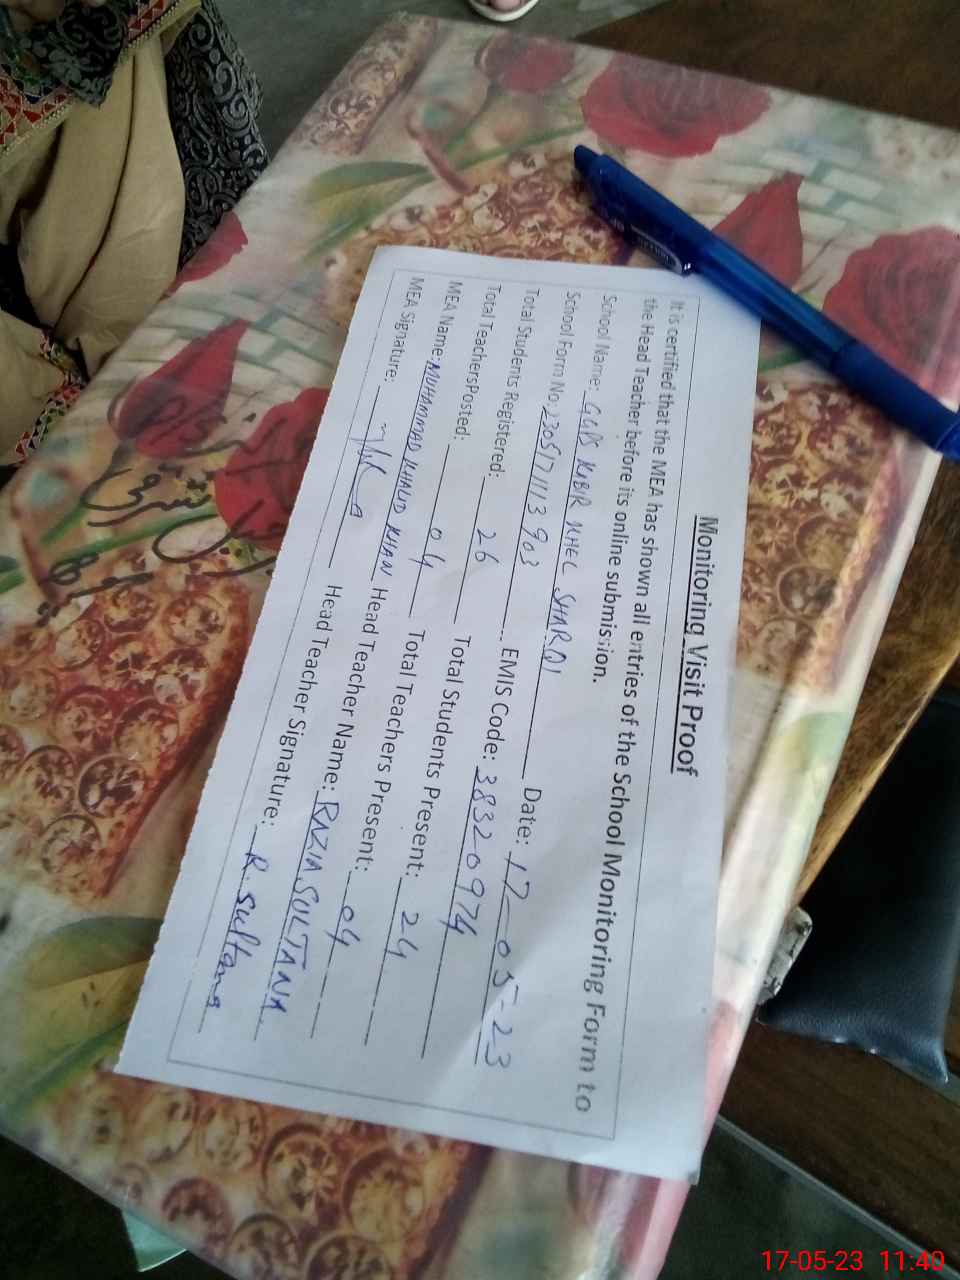 Monitoring Visit Proof
It is certified that the MEA has shown all entries of the School Monitoring Form to
the Head Teacher before its online submission.
School Name: GGPS KABIR KHEL SHARQI Date: 17-05-23
School Form No: 2305171113903 EMIS Code: 38320974
Total Students Registered: 26 Total Students Present: 24
Total TeachersPosted: 04 Total Teachers Present: 04
MEA Name: MUHAMMAD KHALID KHAN Head Teacher Name: RAZIA SULTANA
MEA Signature: Head Teacher Signature: R.sultana
17-05-23 11:40